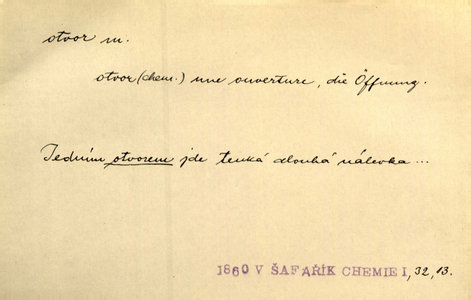 otvor m.
otvor (chem.) une ouverture, die Öffnung.
Jedním otvorem jde tenká dlouhá nálevka ...
1860 V ŠAFAŘÍK CHEMIE I, 32, 13.